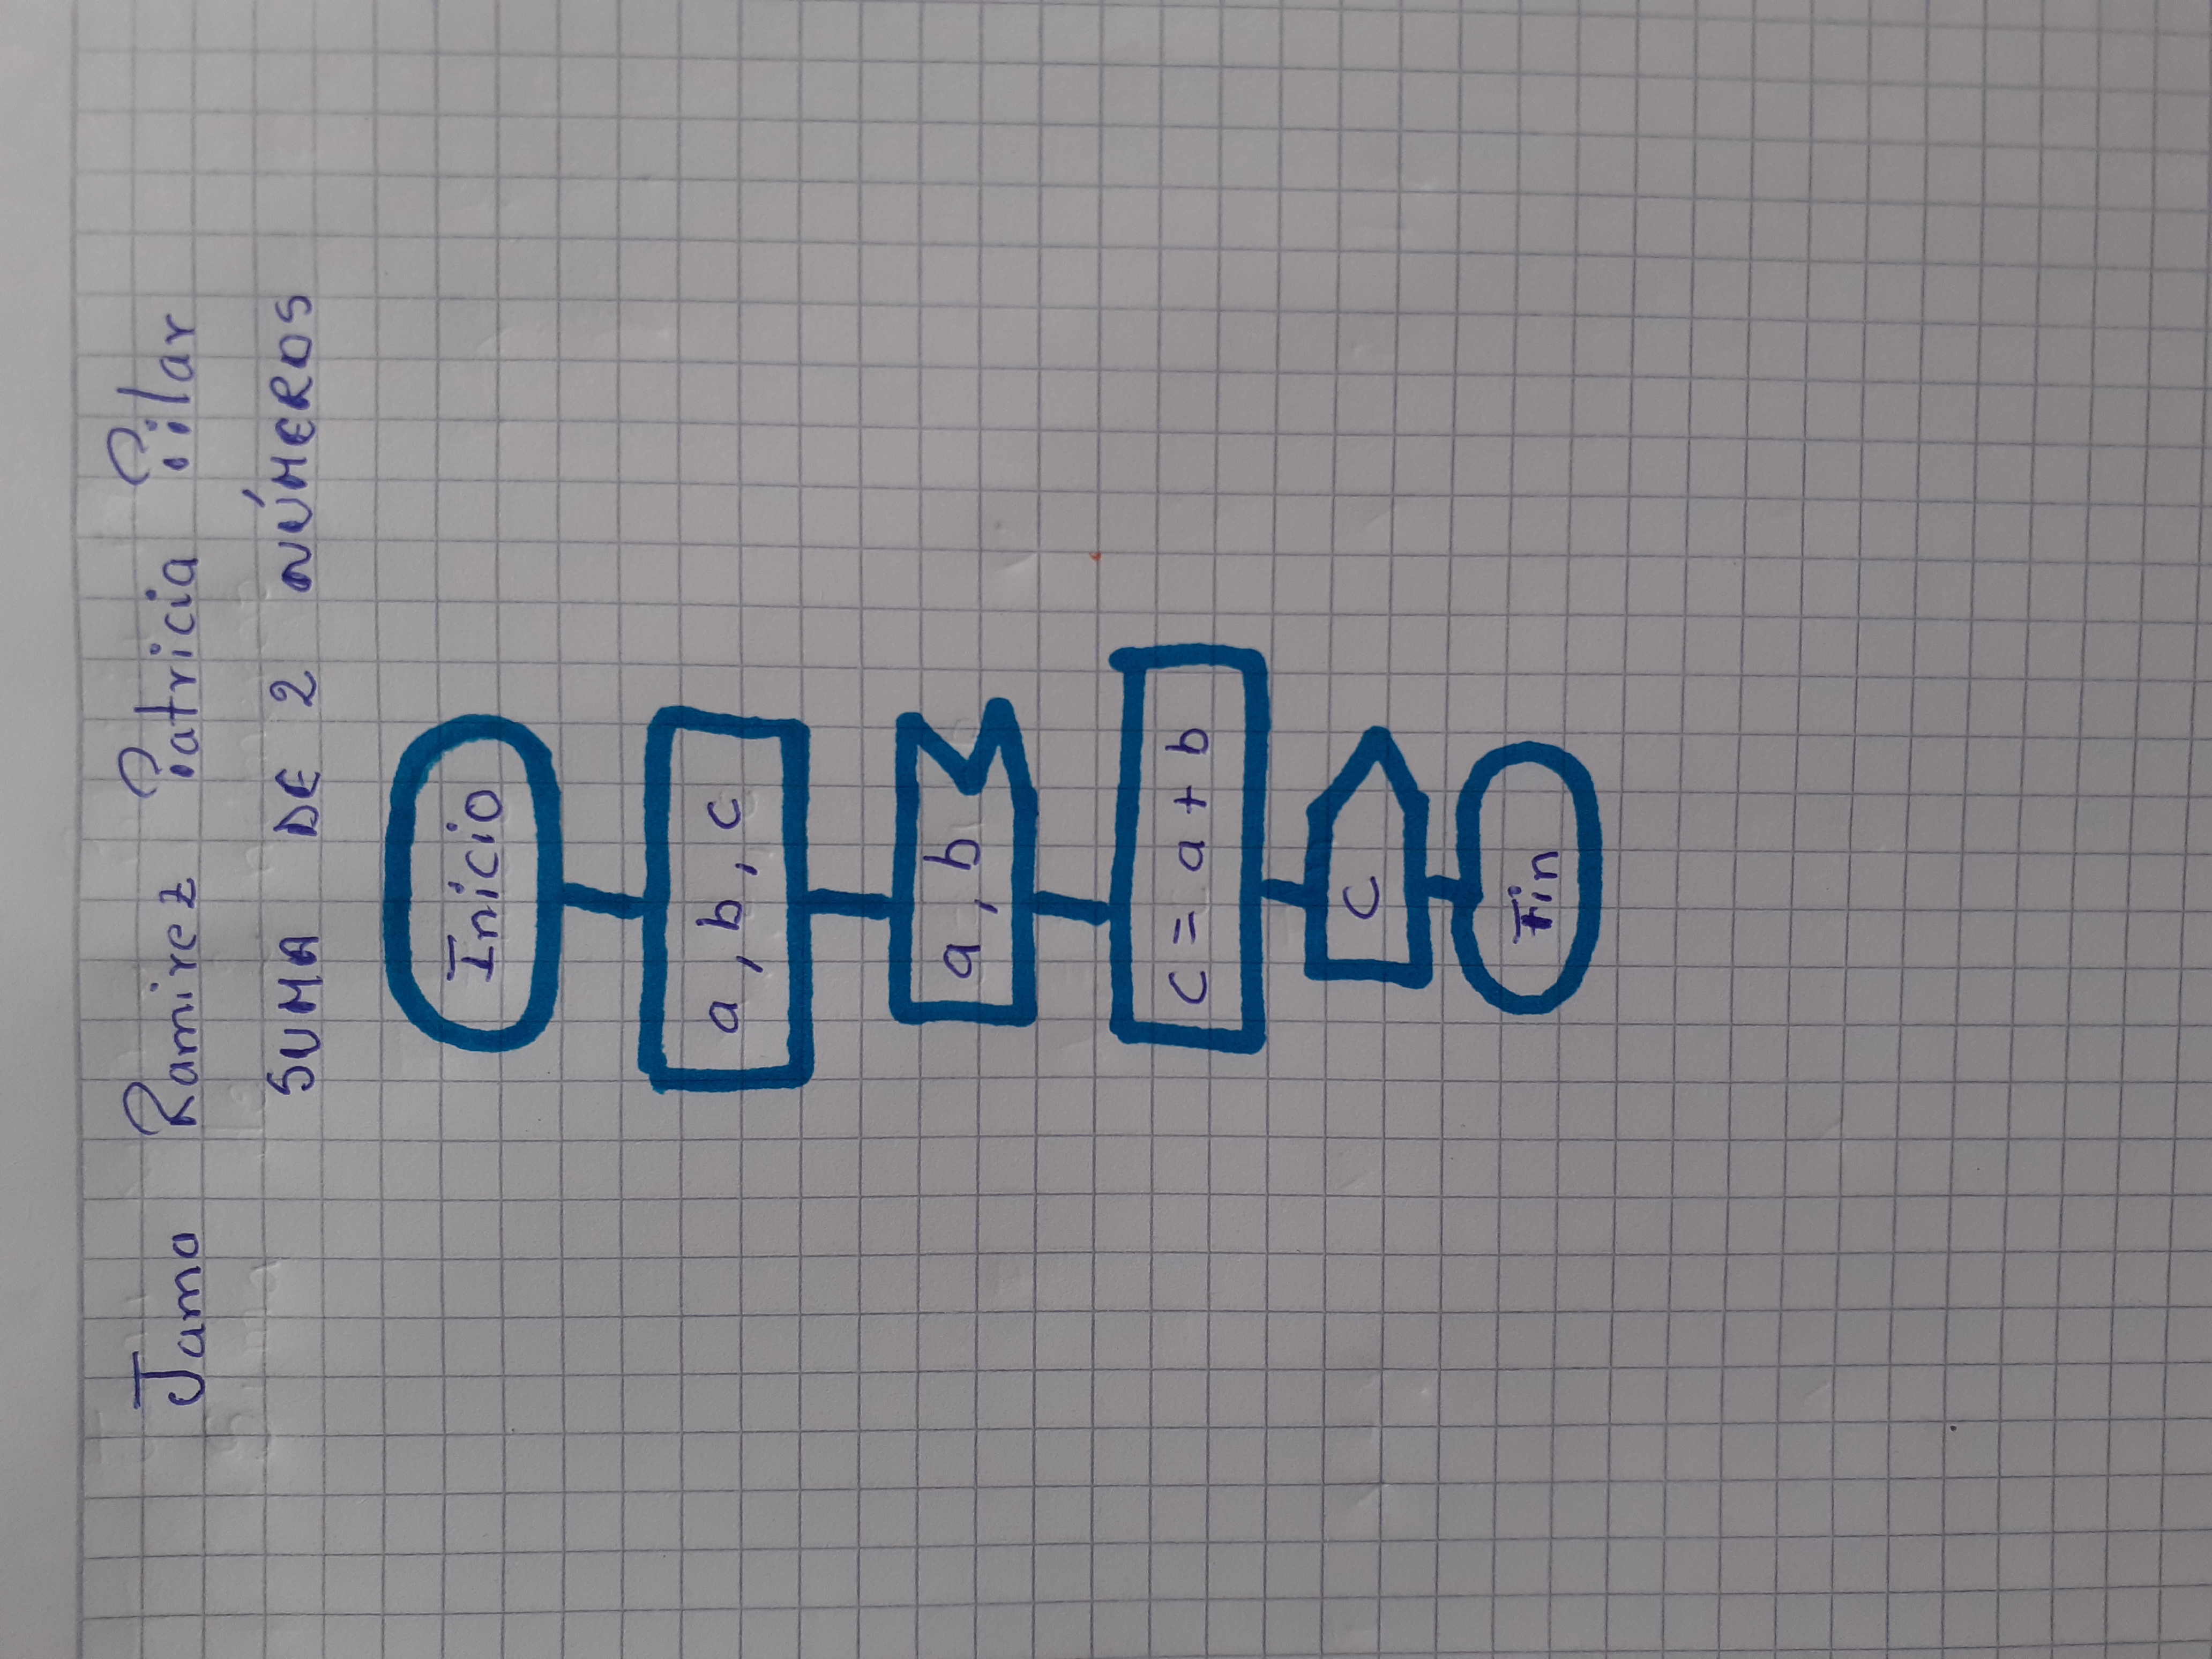 Jama Ramirez Patricia Pilar
SUMA DE 2 NÚMEROS
Inicio
a, b, c
a, b
c = a + b
c
Fin